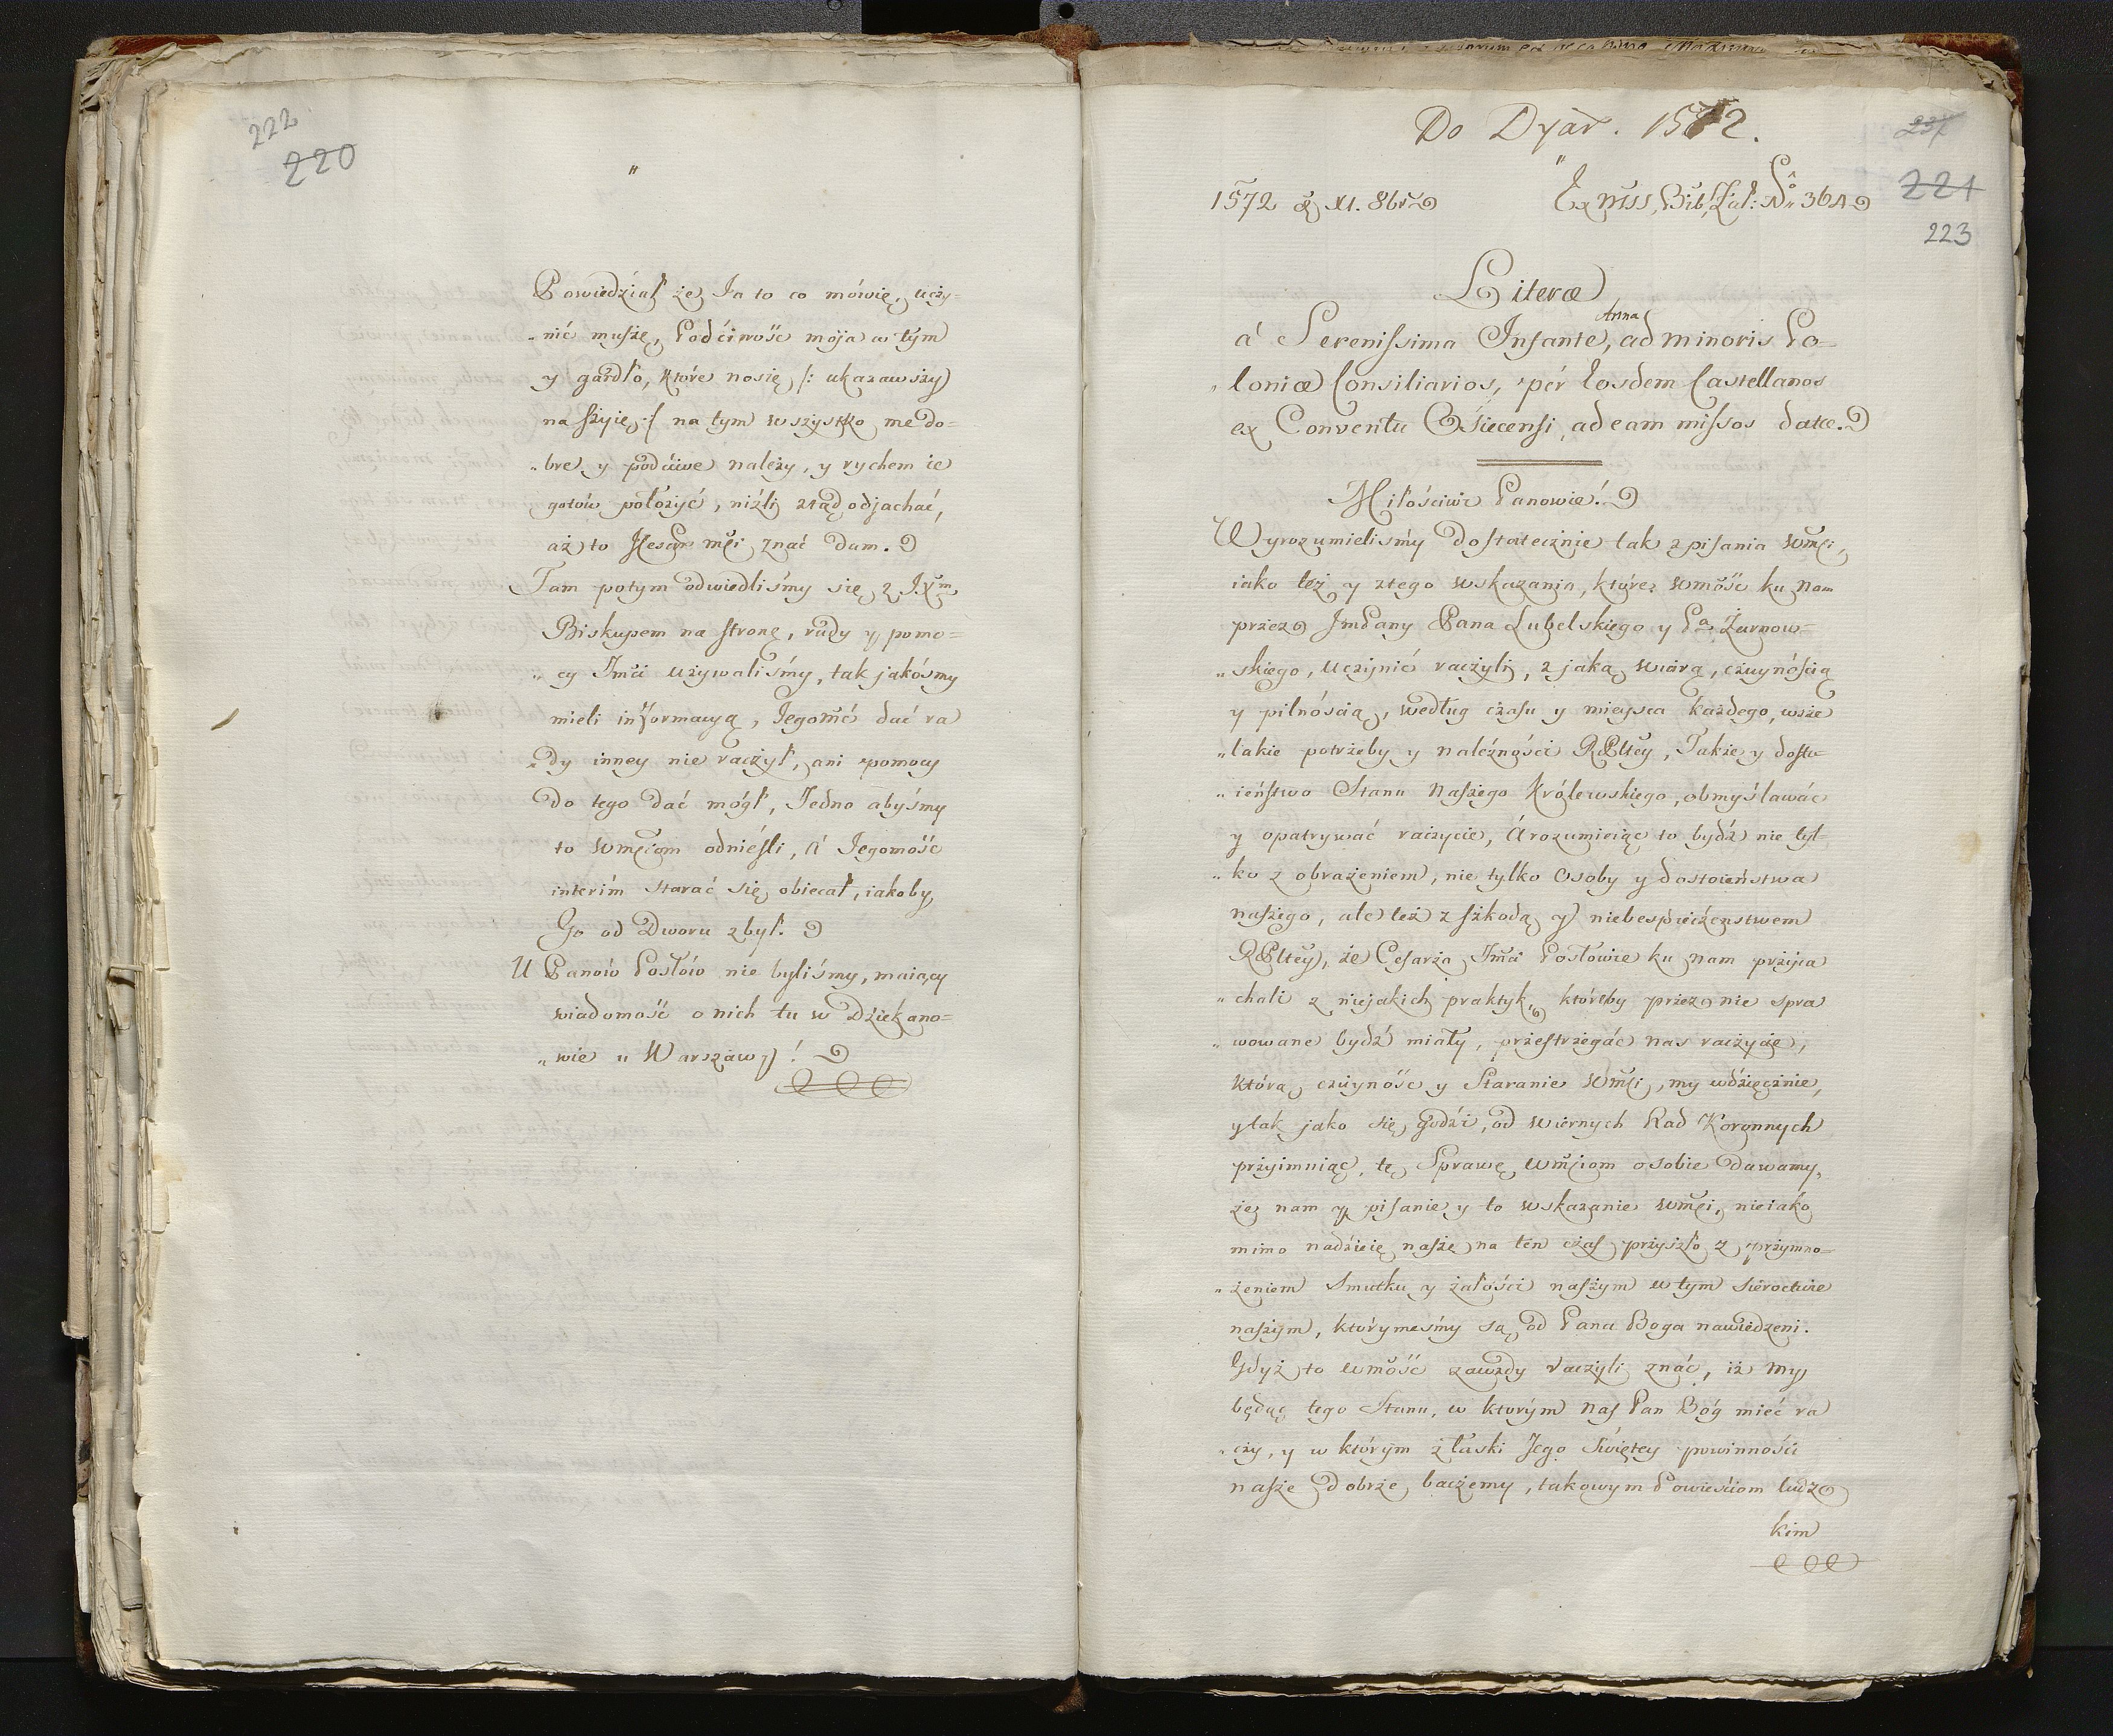 222
220
"
Powiedział że Ja to co mówię, uczy=
„nić muszę, Podćiwość moja w tym
y gardło, które noszę /: ukazawszy
na szyię :/ na tym wszystko me do=
„bre y podćiwe należy, y rychem ie
gotów położyć, niźli ztąd odjachać,
aż to Cesar Mći znać dam.
Tam potym odwiedliśmy się z JXm
Biskupem na stronę, rady y pomo=
„cy Jmći używaliśmy, tak jakośmy
mieli informacyą, Jegomć dać ra
„dy inney nie raczył, ani pomocy
do tego dać mógł, Jedno abyśmy
to Wmciom odnieśli, á Jegomość
interim starać się obiecał, iakoby
Go od Dworu zbył.
U Panów Posłów nie byliśmy, maiący
wiadomość o nich tu w Dziekano=
„wie u Warszawy!
Do Dyar. 1572.
231
221
223
1572 XI. 8br
Ex Mss, Bib: Zał: No 364
Literæ
Anna
á Serenissima Infante, ad minoris Po=
„loniæ Consiliarios, pér Eosdem Castellanos
ex Conventu Osiecensi, ad eam missos datæ.
Miłościwi Panowie!
Wyrozumieliśmy dostatecznie tak z pisania Wmći,
iako też y z tego wskazania, które Wmość ku Nam
przez Jmć Pany Pana Lubelskiego y Pa Żarnow=
„skiego, uczynić raczyli, z jaką wiarą, czuynością
y pilnością, według czasu y mieysca każdego, wsze
„lakie potrzeby y należności RPltey, Także y dosto=
„ieństwo Stanu Naszego Królewskiego, obmyślawać
y opatrywać raczycie, Á rozumieiąc to bydź nie tyl=
„ko z obrażeniem, nie tylko Osoby y dostoieństwa
naszego, ale też z szkodą y niebespieczenstwem
RPltey, że Cesarza Jmći Posłowie ku nam przyia
„chali z niejakich praktyk, któreby przez nie spra
„wowane bydź miały, przestrzegać nas raczycie,
którą czuyność y Staranie Wmći, my wdzięcznie,
y tak jako się godzi, od wiernych Rad Koronnych
przyimuiąc, tę Sprawę Wmciom o sobie dawamy,
że nam y pisanie y to wskazanie Wmći, nieiako
mimo nadzieię naszę na ten czas przyszło z przymno=
„żeniem Smutku y żałości naszym w tym Sieroctwie
naszym, którymeśmy są od Pana Boga nawiedzeni.
Gdyż to Wmość zawzdy raczyli znać, iż my
będąc tego Stanu, w którym Nas Pan Bóg mieć ra
„czy, y w którym z łaski Jego Swiętey powinności
nasze dobrze baczemy, takowym Powieściom ludz
kim